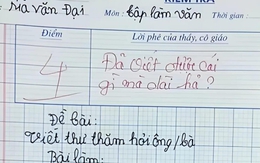 Mã Văn Đại Môn: tập làm văn Thời gian
Điểm Lời phê của thầy, cô giáo
4 Đã viết chữ cái
gì mà dài hả?
Đề bài:
Viết thư thăm hỏi ông/bà
Bài làm: